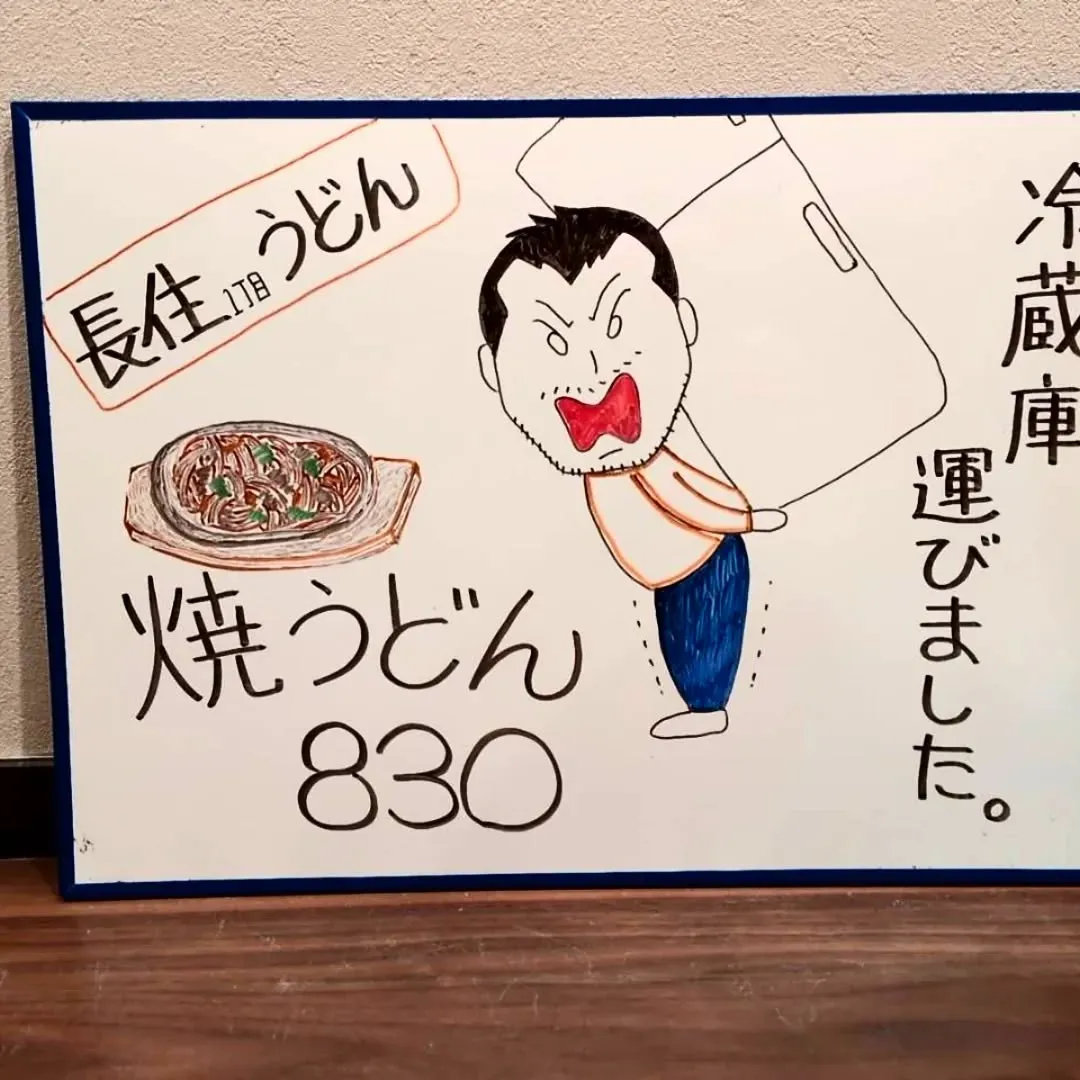 長住1丁目うどん
焼うどん
830
冷蔵庫
運びました。